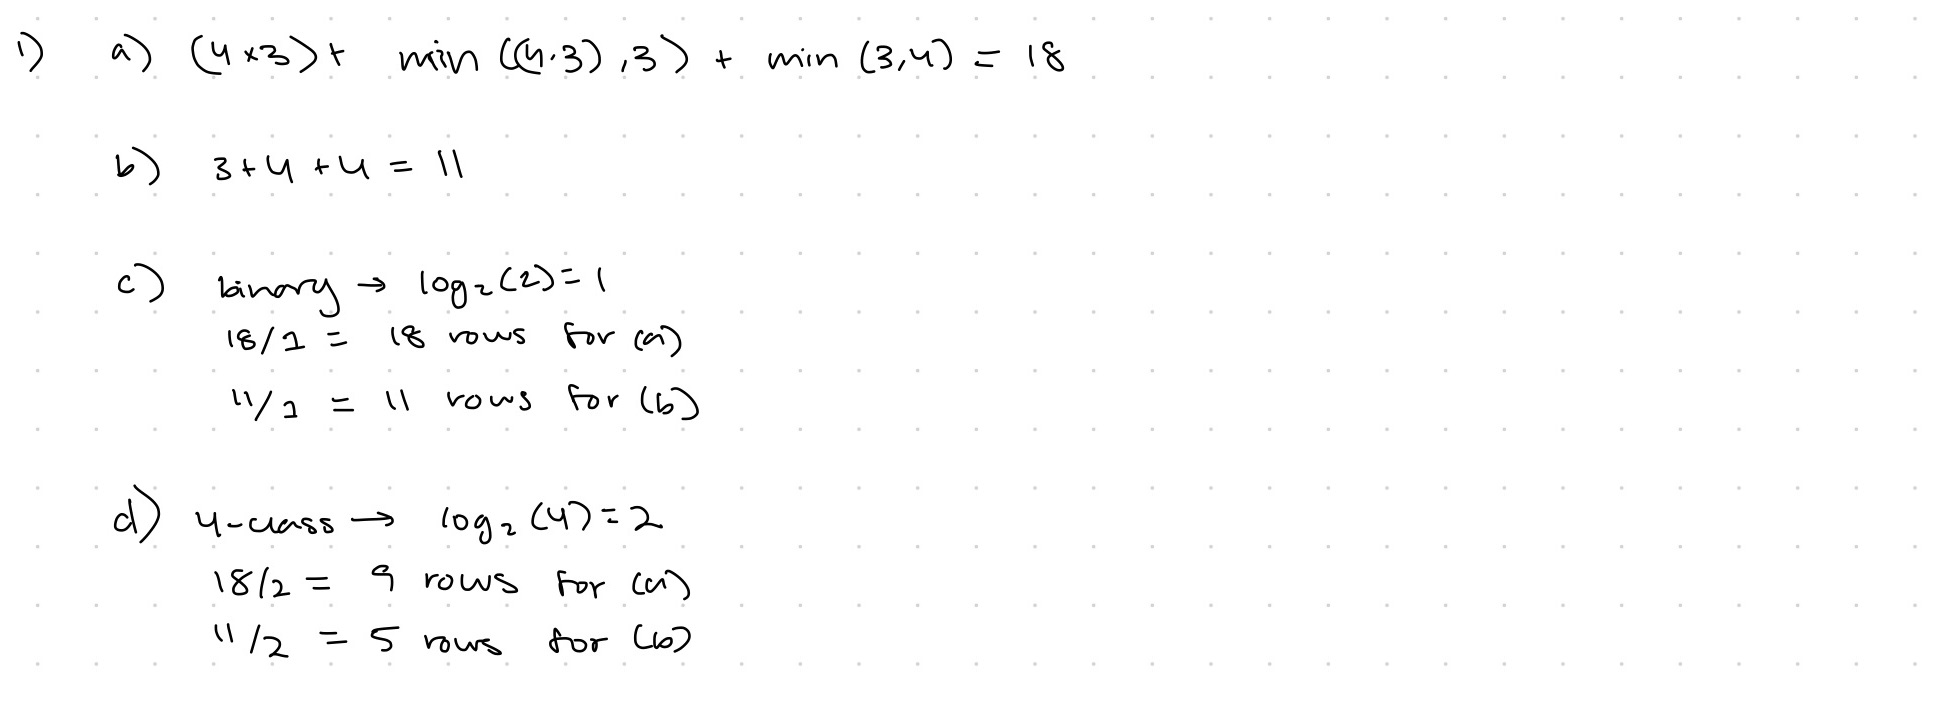 1) a) (4×3)+ min ((4·3),3) + min (3,4) = 18
b) 3+4+4 = 11
c) binary → log₂(2)=1
18/1 = 18 rows for (a)
11/1 = 11 rows for (b)
d) 4-class → log₂(4)=2
18/2 = 9 rows for (a)
11/2 = 5 rows for (b)